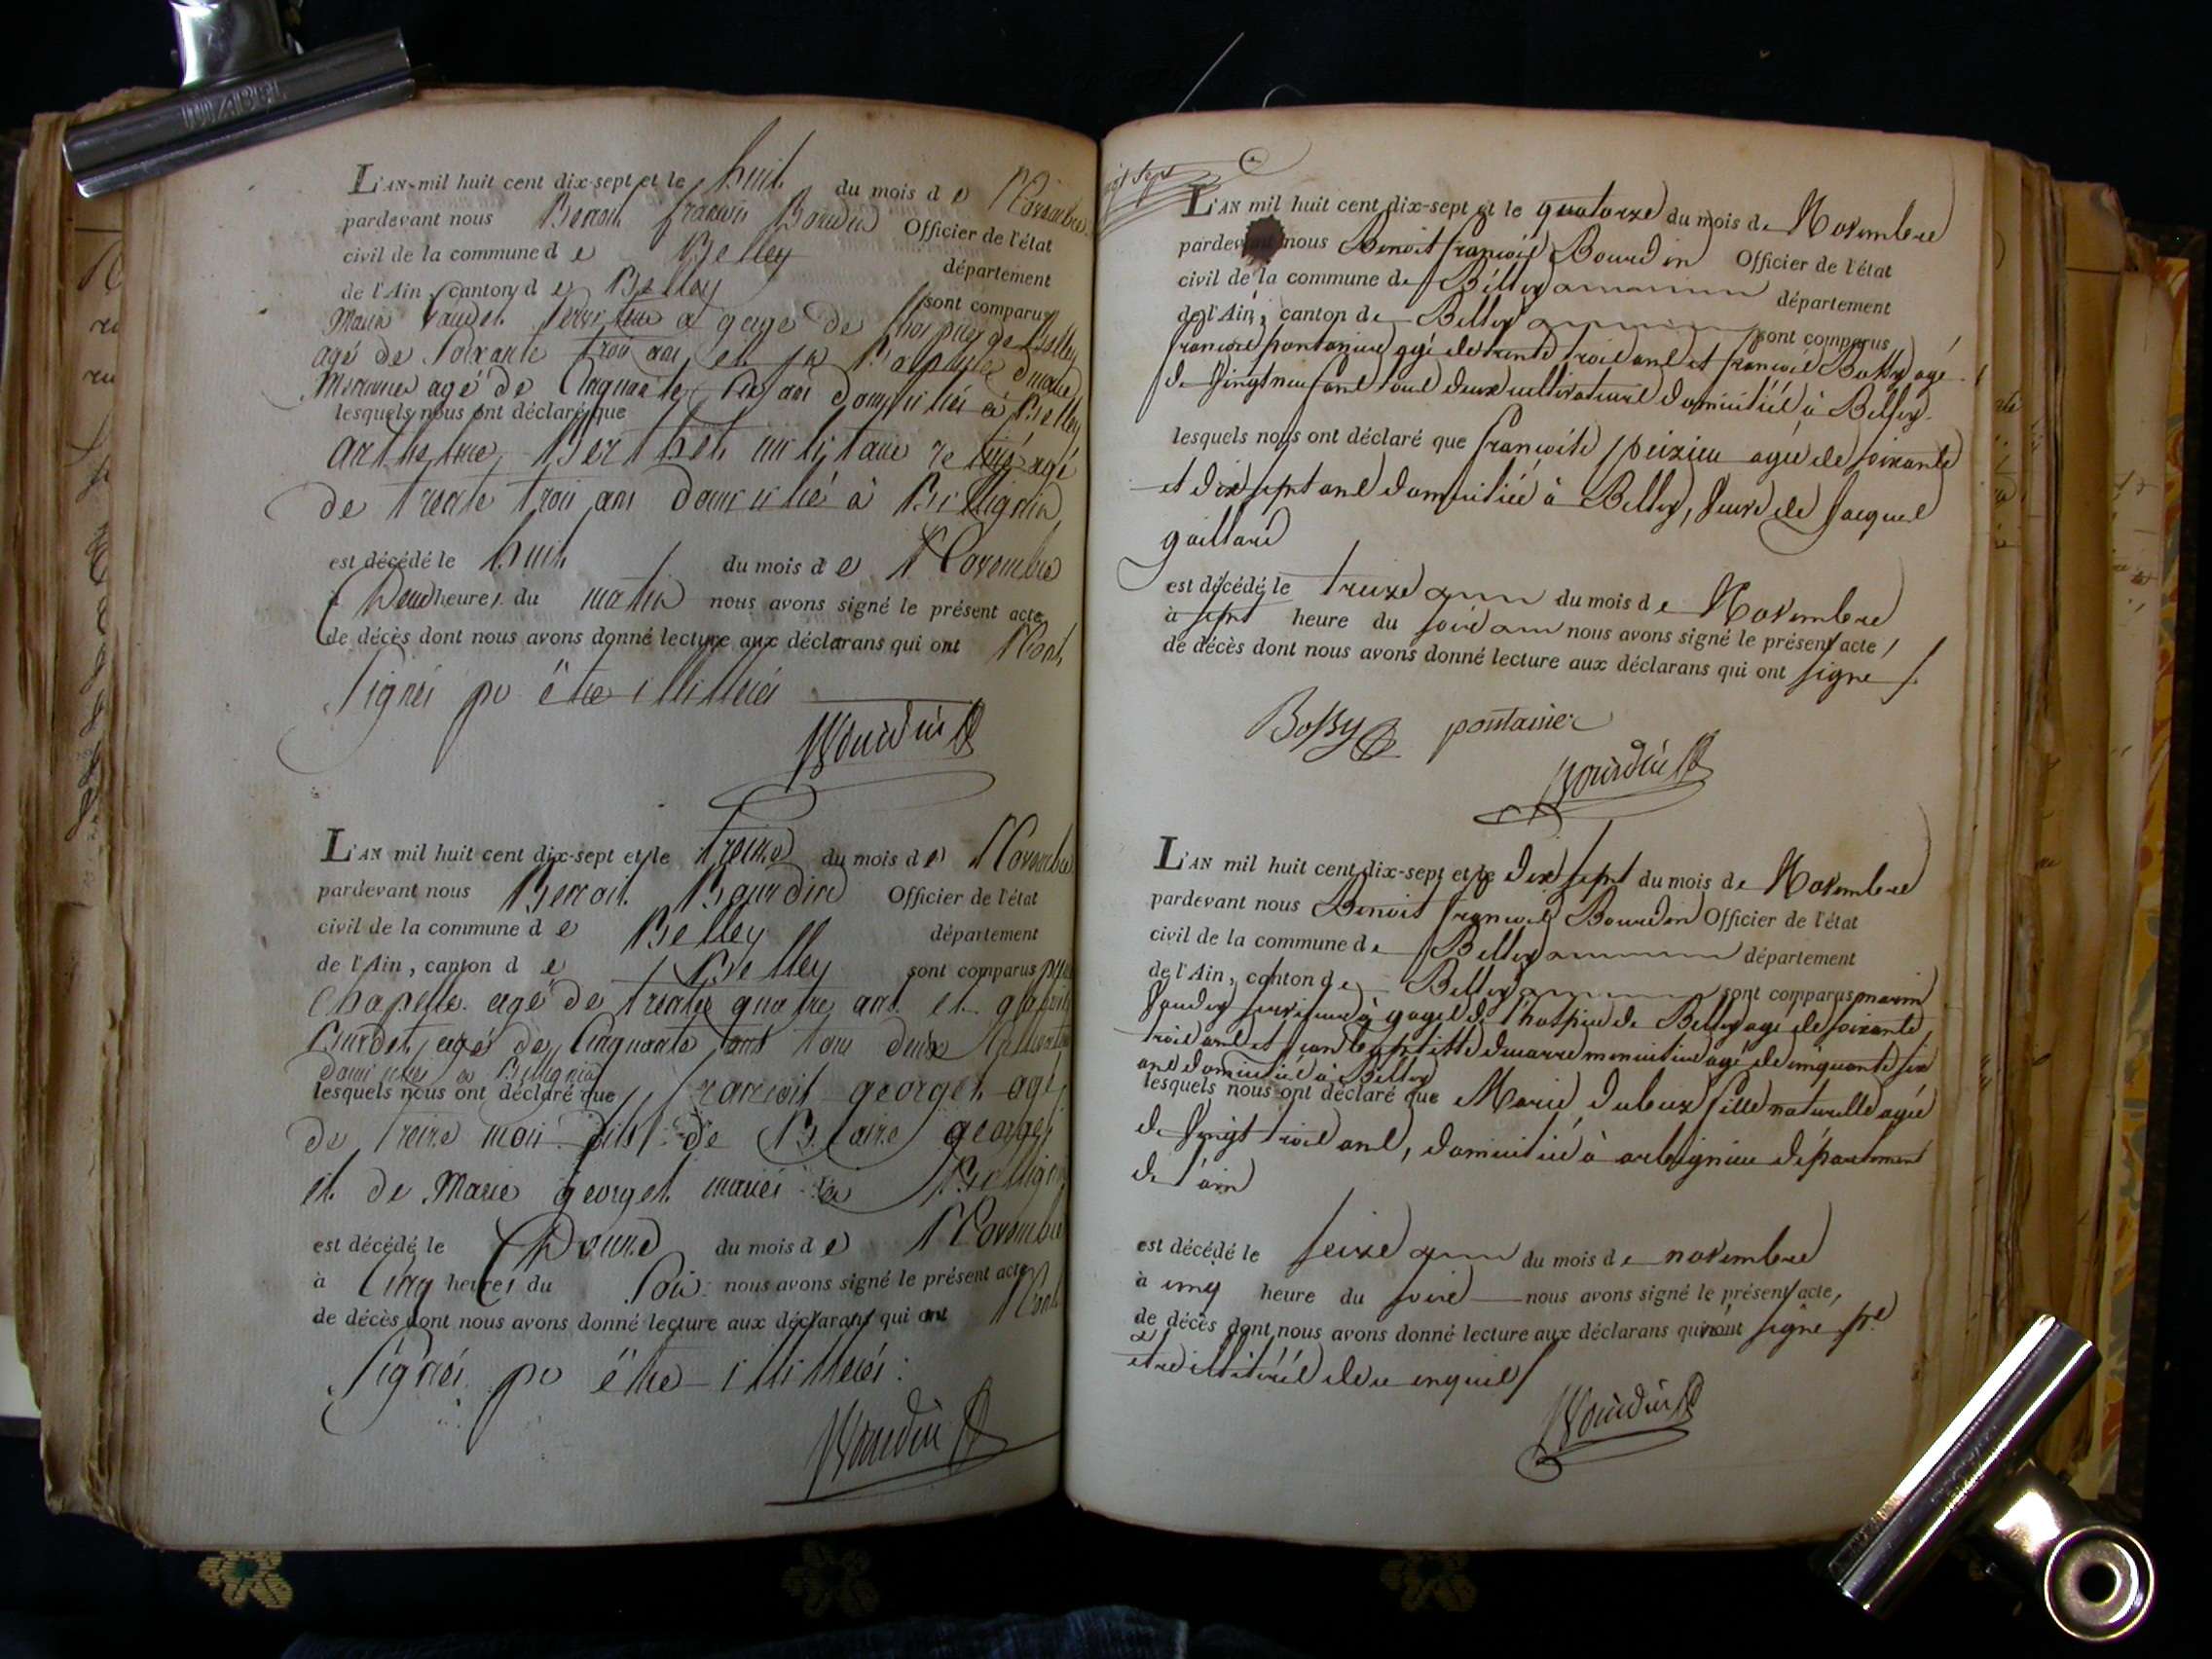 L'AN mil huit cent dix-sept et le huit du mois de Novembre
pardevant nous Benoit françois Bourdin Officier de l'état
civil de la commune de Belley département
de l'Ain, canton de Belley sont comparus
Marin Vaudet serviteur a gage de l'hospice de Belley
agé de soixante trois ans et jn Baptiste dmarre
agé de Cinquante six ans domiciliés à Belley
lesquels nous ont déclaré que
arthelme Berthet militaire retiré agé
de trente trois ans domicilié à Billignin
est décédé le huit du mois de Novembre
à Deux heures du matin nous avons signé le présent acte
de décès dont nous avons donné lecture aux déclarans qui ont Nont
signés pr être illitterés
Bourdin
L'AN mil huit cent dix-sept et le treize du mois de Novembre
pardevant nous Benoit Bourdin Officier de l'état
civil de la commune de Belley département
de l'Ain, canton de Belley sont comparus
Chapelle agé de trente quatre ans et
agé de Cinquante ans tous deux
domiciliés a Billignin
lesquels nous ont déclaré que françois georget agé
de treize mois fils de Claire georges
et de Marie georget mariés a Billignin
est décédé le Douze du mois de Novembre
à Cinq heures du Soir nous avons signé le présent acte
de décès dont nous avons donné lecture aux déclarans qui ont Nont
signés pr être illitterés
Bourdin
L'AN mil huit cent dix-sept et le quatorze du mois de Novembre
pardevant nous Benoit françois Bourdin Officier de l'état
civil de la commune de Belley département
de l'Ain, canton de Belley sont comparus
françois pontanier agé de trente trois ans et françois Bossy agé
de vingt neuf ans tous deux cultivateurs domiciliés à Belley
lesquels nous ont déclaré que françoise peizieu agée de soixante
et dix sept ans domiciliée à Belley, veuve de Jacques
gaillard
est décédé le treize du mois de Novembre
à sept heure du soir nous avons signé le présent acte
de décès dont nous avons donné lecture aux déclarans qui ont signe
Bossy pontanier
Bourdin
L'AN mil huit cent dix-sept et le dix sept du mois de Novembre
pardevant nous Benoit françois Bourdin Officier de l'état
civil de la commune de Belley département
de l'Ain, canton de Belley sont comparus marin
serviteur à gages de l'hospice de Belley agé de soixante
trois ans et jean Baptiste dmarre agé de cinquante six
ans domicilié à Belley
lesquels nous ont déclaré que Marie dubeux fille naturelle agée
de vingt trois ans, domiciliée à arbignieu département
de l'ain
est décédé le seize du mois de novembre
à cinq heure du soir nous avons signé le présent acte,
de décès dont nous avons donné lecture aux déclarans qui n'ont signé pr
etre illitérés de ce enquis
Bourdin